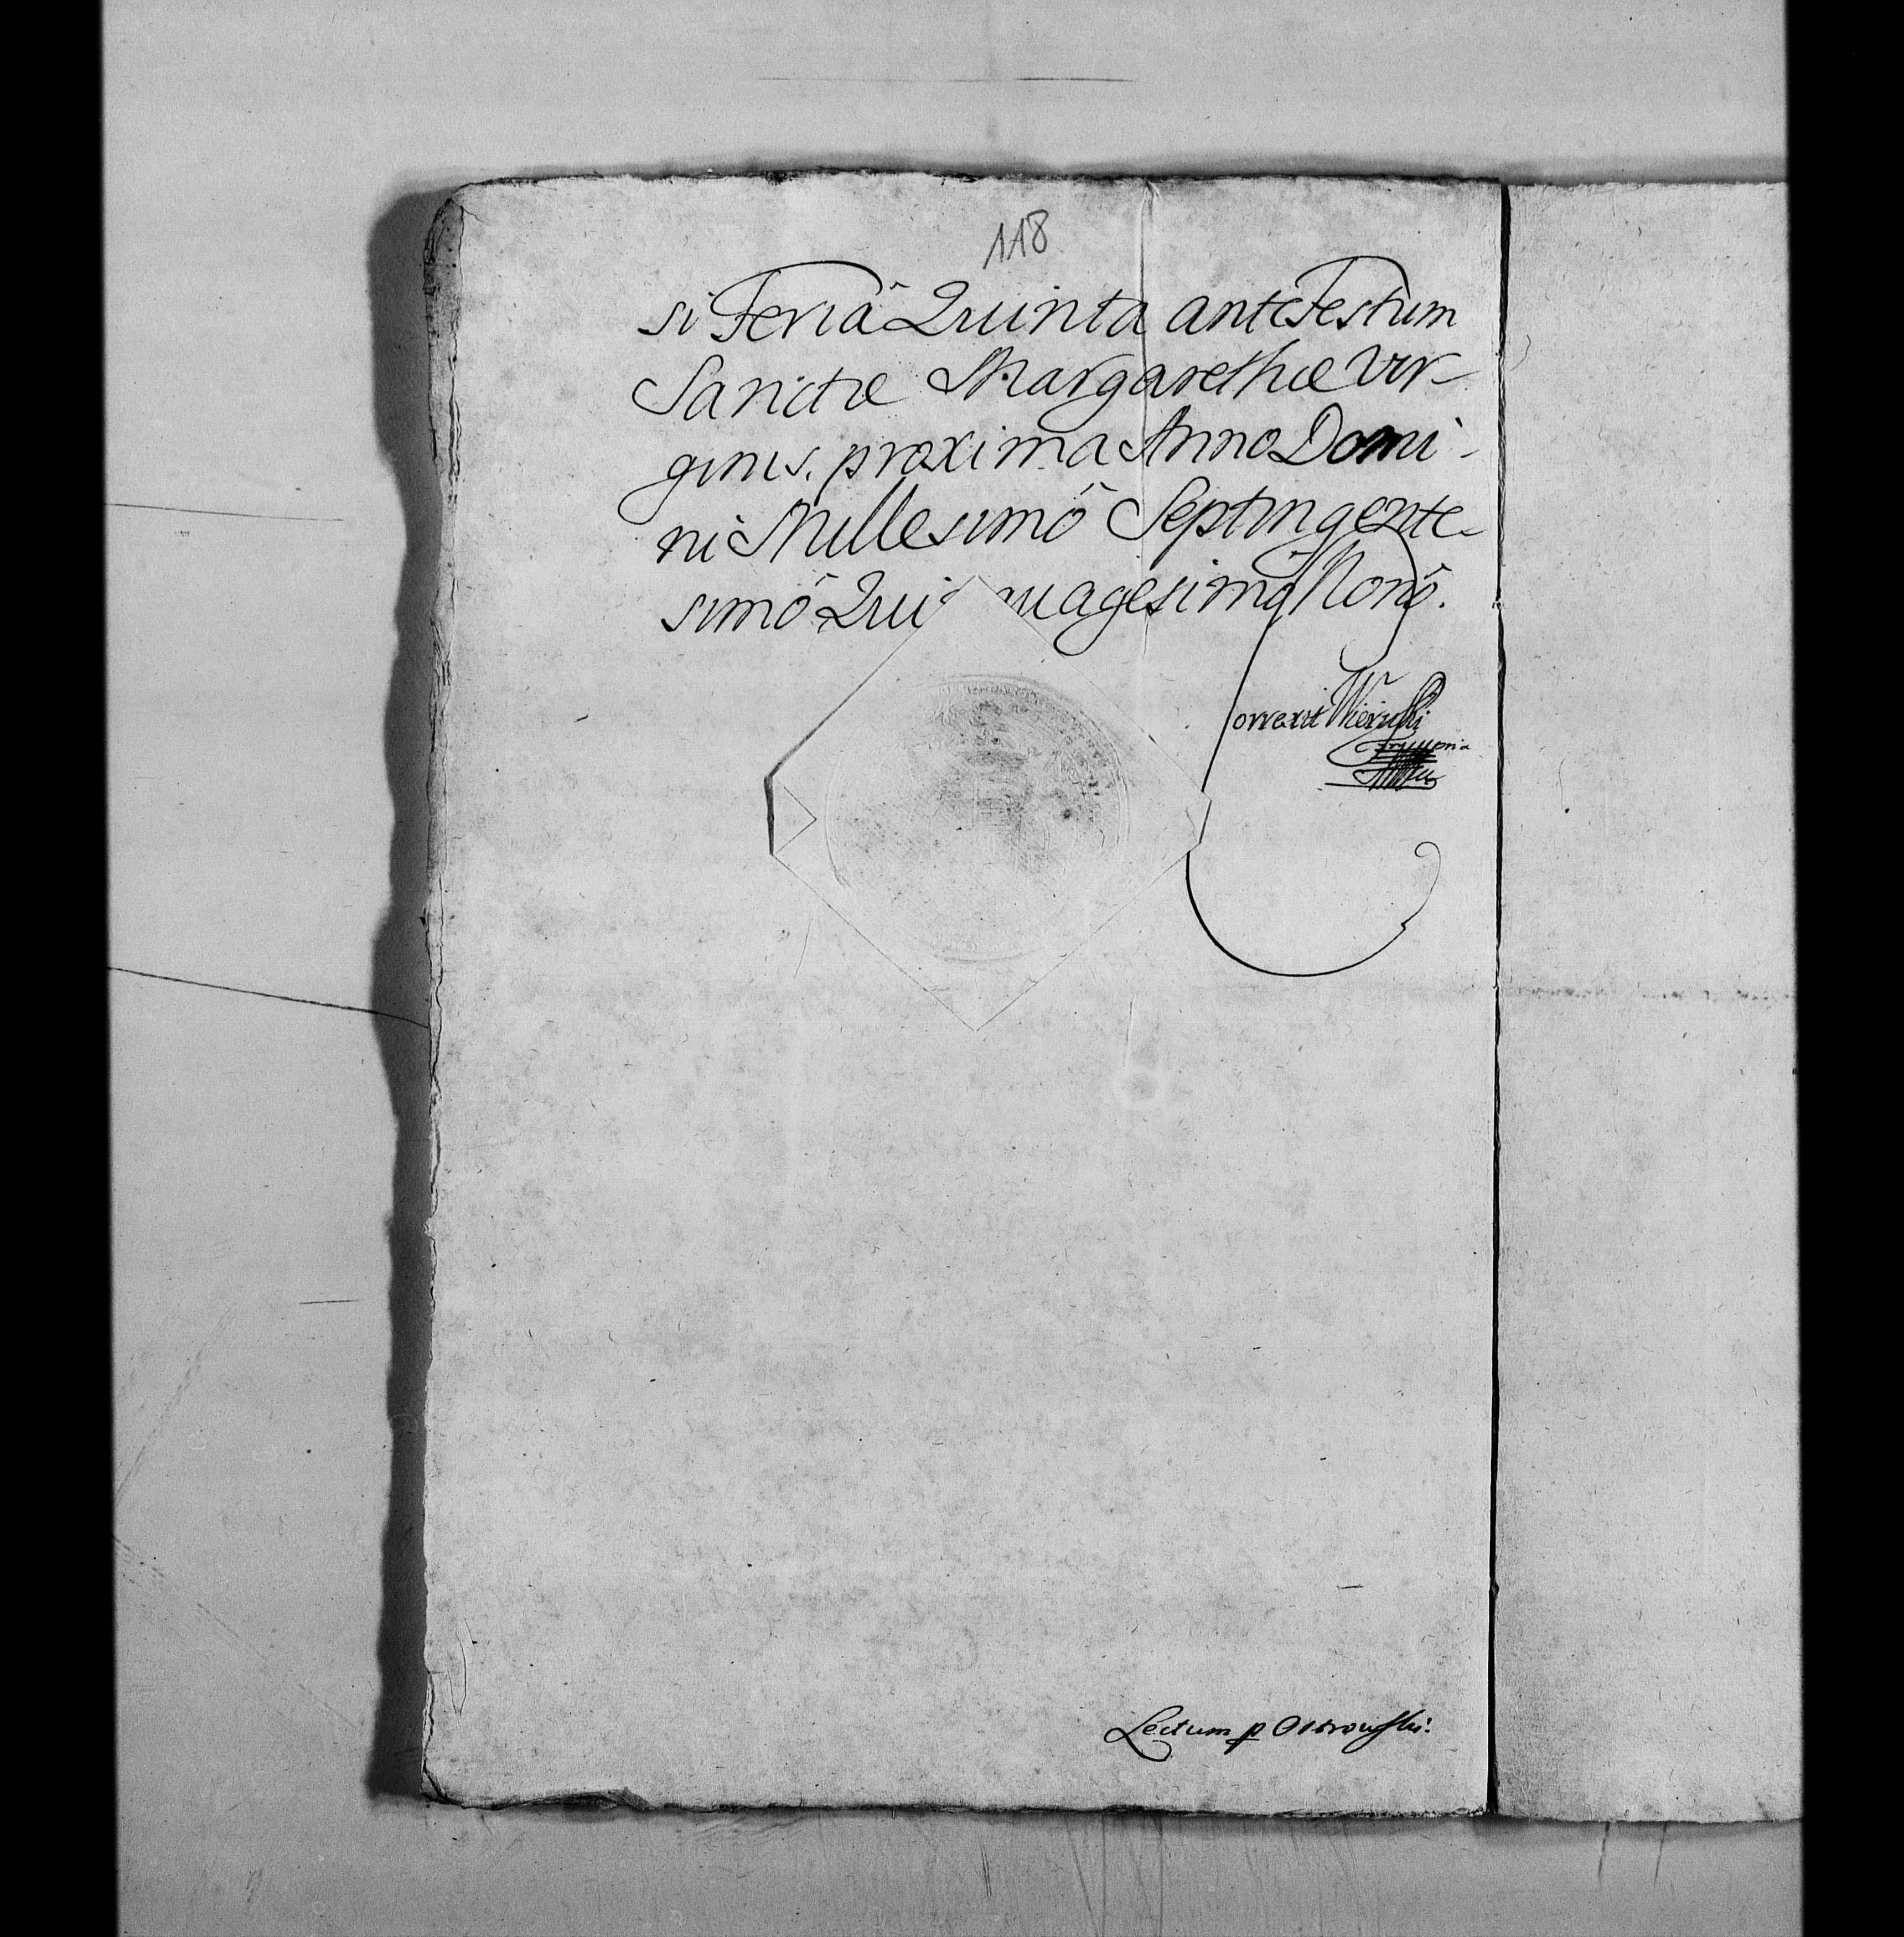 118
si Feriâ Quinta ante Festum
Sanctæ Margarethæ Vir-
ginis. proxima Anno Domi-
ni Millesimô Septingente-
simô Qui quagesimô Nonô.
Correxit Wierulski
Lectum p Ostrowski.